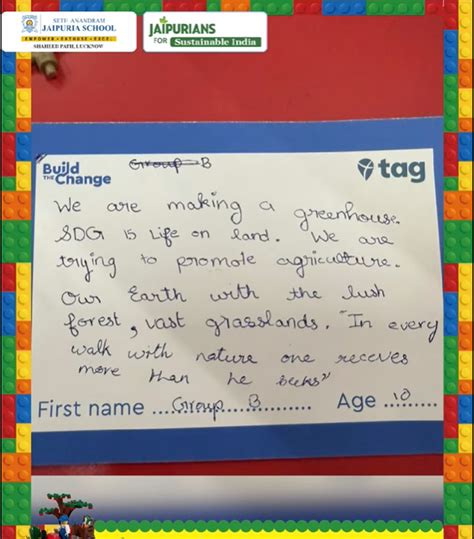 SETH ANANDRAM
JAIPURIA SCHOOL
EMPOWER • ENTHUSE • EXCEL
SHAHEED PATH, LUCKNOW
JAIPURIANS
FOR Sustainable India
Build
THE Change
Group B
tag
We are making a greenhouse.
SDG 15 Life on land. We are
trying to promote agriculture.
Our Earth with the lush
forest, vast grasslands. "In every
walk with nature one receves
more than he seeks"
First name ....Group B........ Age ..10....